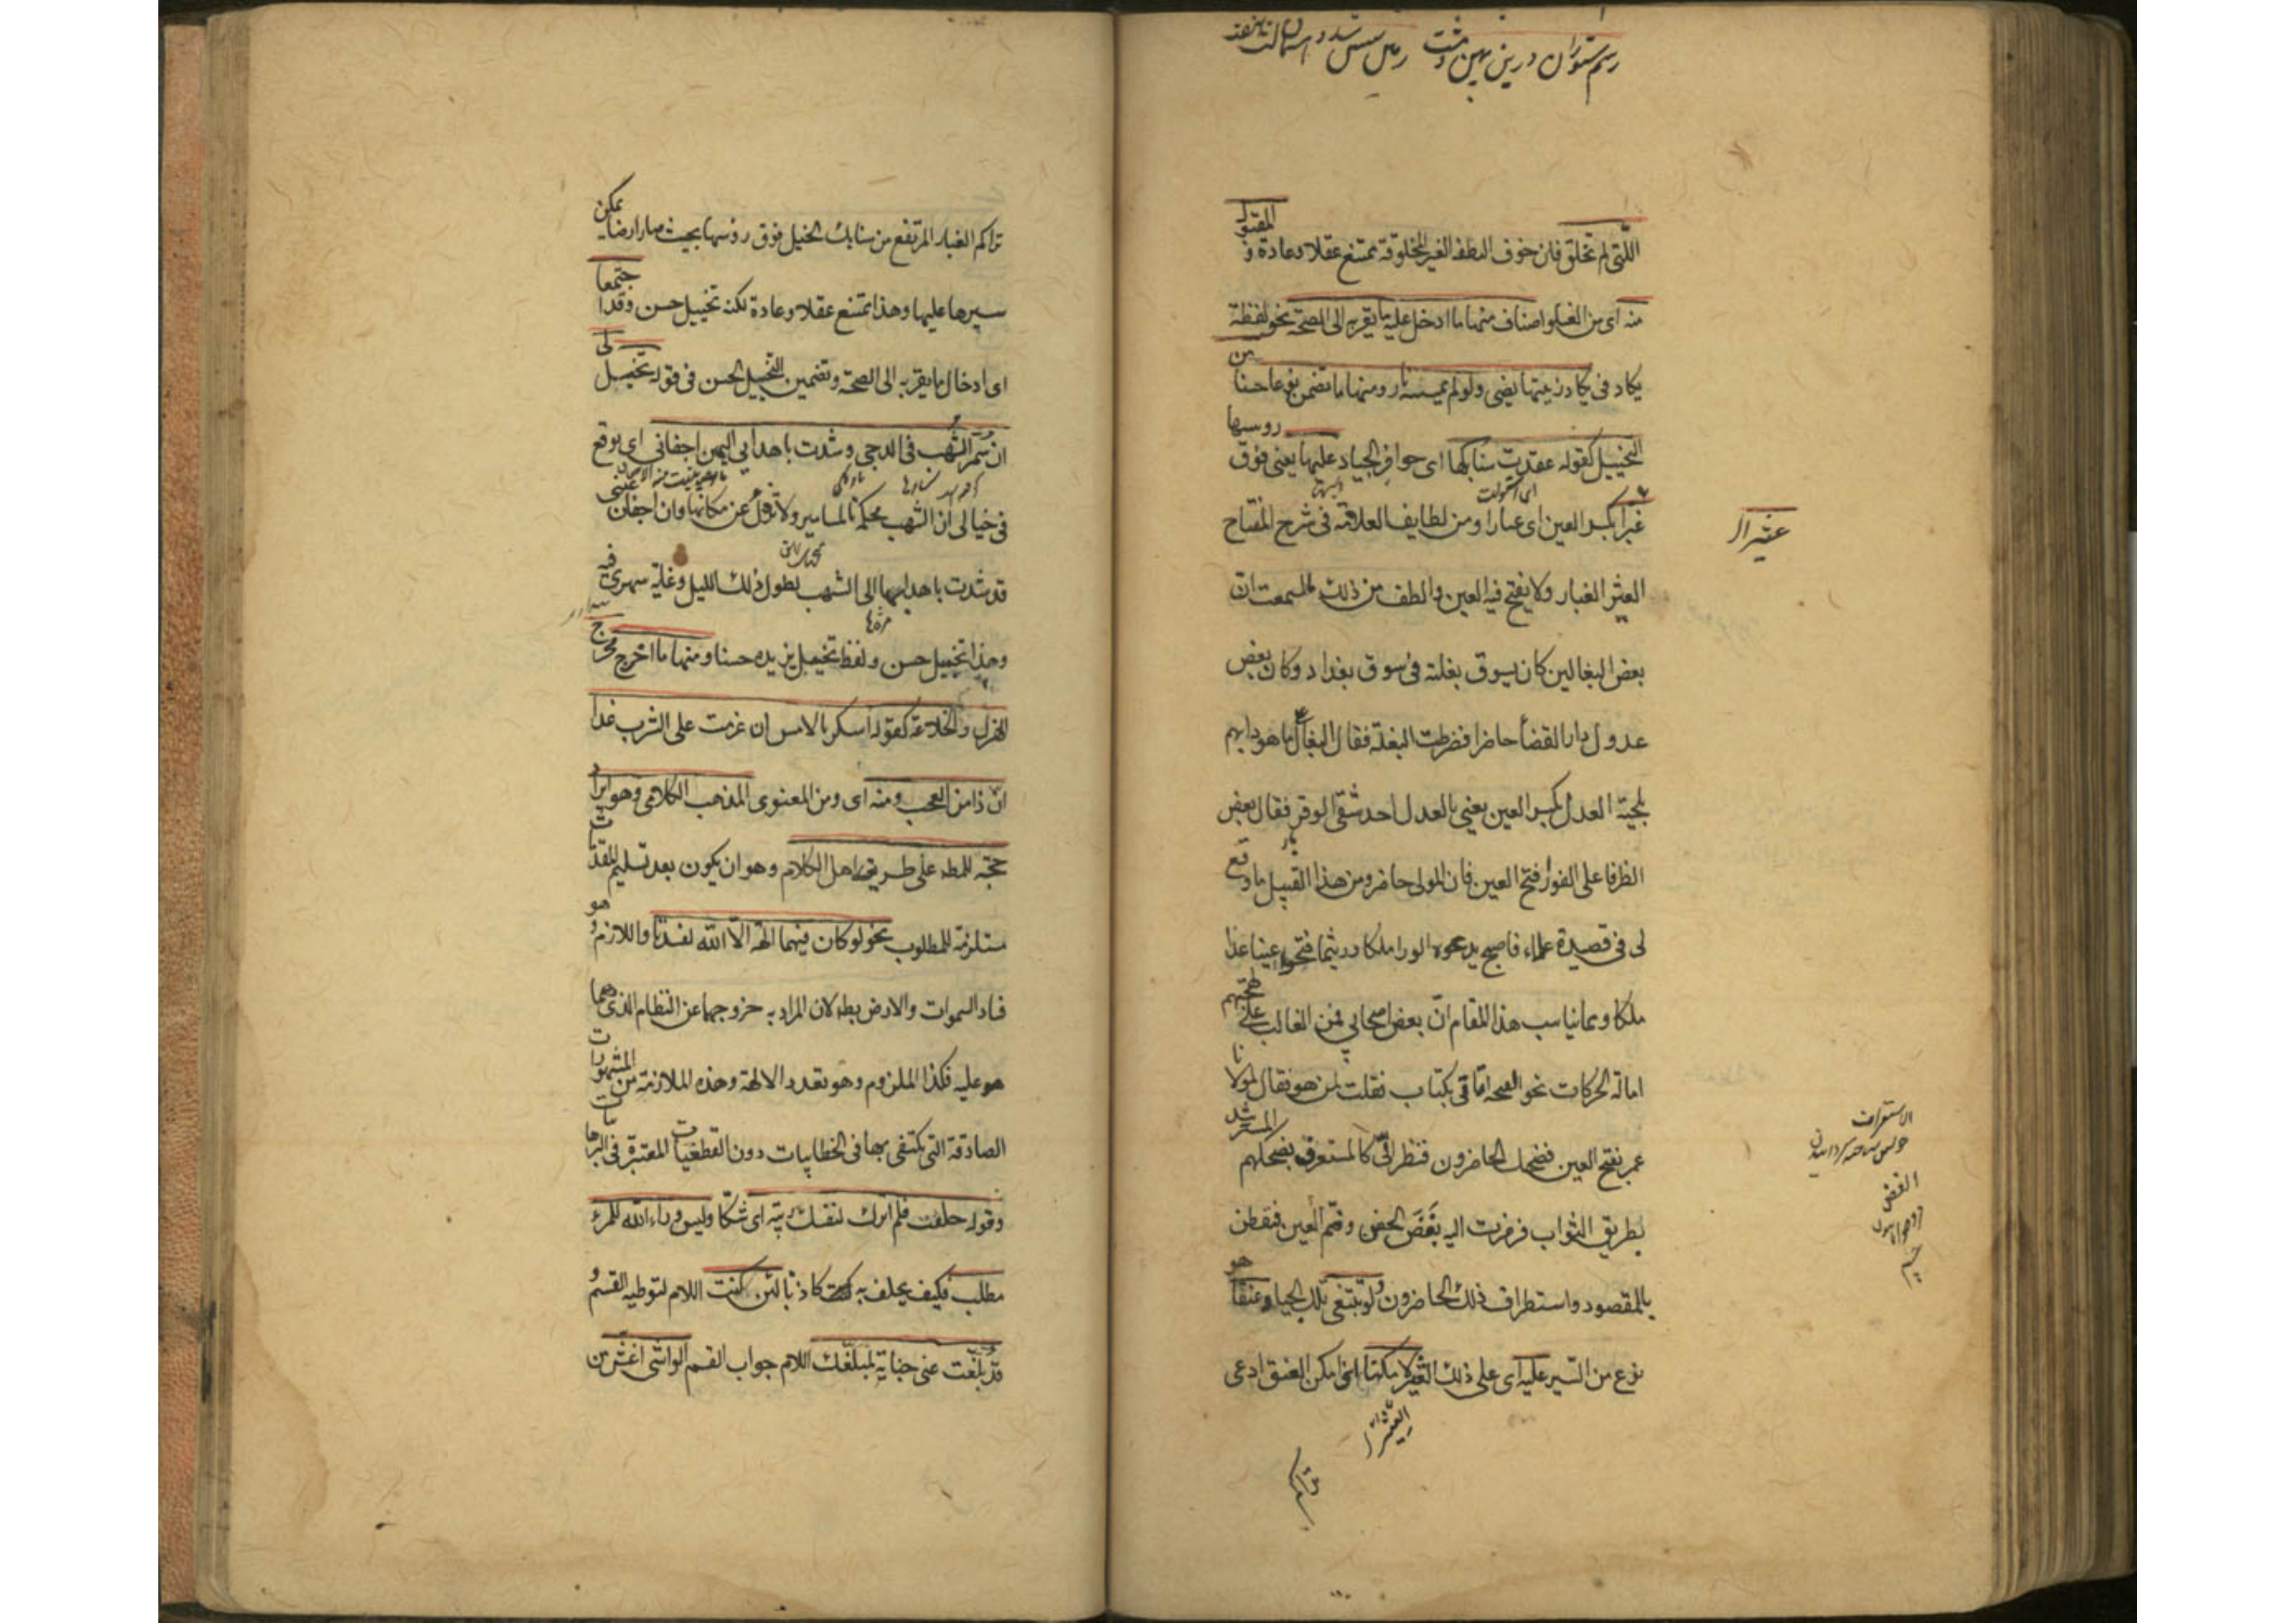 رسم ستوران درین پهن دشت زمین شش شد و آسمان گشت هشت
اللتی لم تخلق فان خوف النطف الغیر المخلوقة ممتنع عقلا وعادة و المقبول
منه ای من الغلو اصناف منها ما ادخل علیه ما یقربه الی الصحة نحو لفظة
یکاد فی یکاد زیتها یضیء ولو لم تمسسه نار ومنها ما تضمن نوعا حسنا من
التخییل کقوله عقدت سنابکها ای حوافر الجیاد علیها یعنی فوق روسها
عثیرا بکسر العین ای غبارا ومن لطایف العلامة فی شرح المفتاح
العثیر الغبار ولا یفتح فیه العین والطف من ذلک ما سمعت ان
بعض البغالین کان یسوق بغلته فی سوق بغداد وکان بعض
عدول دار القضاء حاضرا فضرطت البغلة فقال البغال ما هو دابهم
بلحیة العدل بکسر العین یعنی بالعدل احد شقی الوقر فقال بعض
الظرفا علی الفور افتح العین فان المولی حاضر ومن هذا القبیل ما وقع
لی فی قصیدة علاء فاصبح یدعوه الورا ملکا وریثما فتحوا عینا غدا
ملکا ومما یناسب هذا المقام ان بعض اصحابی ممن الغالب علی لهجتهم
امالة الحرکات نحو الفتحة اتاقی بکتاب فقلت لمن هو فقال لمولانا
عمر بفتح العین فضحک الحاضرون فنظر الی کالمتعرف بضحکهم المسترشد
بطریق الثواب فرمزت الیه بغض الجفن وضم العین فتفطن
بالمقصود واستظراف ذلک الحاضرون ولو تبتغی تلک الجیاد عنقا هو
نوع من السیر علیه ای علی ذلک العثیر لامکنا ای امکن العنق ادعی
العثیرا
تراکم
عثیرا
الغض
تراکم الغبار المرتفع من سنابک الخیل فوق روسها بحیث صار ارضا یمکن
سیرها علیها وهذا ممتنع عقلا وعادة لکنه تخییل حسن وقد اجتمعا
ای ادخال ما یقربه الی الصحة وتضمین التخییل الحسن فی قوله یخیل لی
ان سمر الشهب فی الدجی وشدت باهدابی الیهن اجفانی ای یوقع
فی خیالی ان الشهب محکمة بالمسامیر ولا تزول عن مکانها وان اجفان عینی
قد شدت باهدابها الی الشهب لطول ذلک اللیل وغلیة سهری فیه
وهذا تخییل حسن ولفظ تخییل یزیده حسنا ومنها ما اخرج مخرج
الهزل والخلاعة کقوله اسکر بالامس ان عزمت علی الشرب غدا
ان ذا من العجب ومنه ای ومن المعنوی المذهب الکلامی وهو ایراد
حجة للمط علی طریقة اهل الکلام وهو ان یکون بعد تسلیم المقدمات
مستلزمة للمطلوب نحو لو کان فیهما الهة الا الله لفسدتا واللازم وهو
فساد السموات والارض بط لان المراد به خروجهما عن النظام الذی هما
هو علیه فکذا الملزوم وهو تعدد الالهة وهذه الملازمة من المشهورات
الصادقة التی یکتفی بها فی الخطابیات دون القطعیات المعتبرة فی البرهانیات
وقوله حلفت فلم اترک لنفسک ریبة ای شکا ولیس وراء الله للمرء
مطلب فکیف یحلف به کاذبا لئن کنت اللام لتوطیه القسم و
قد بلغت عنی جنایة لمبلغک اللام جواب القسم الواشی اغش من